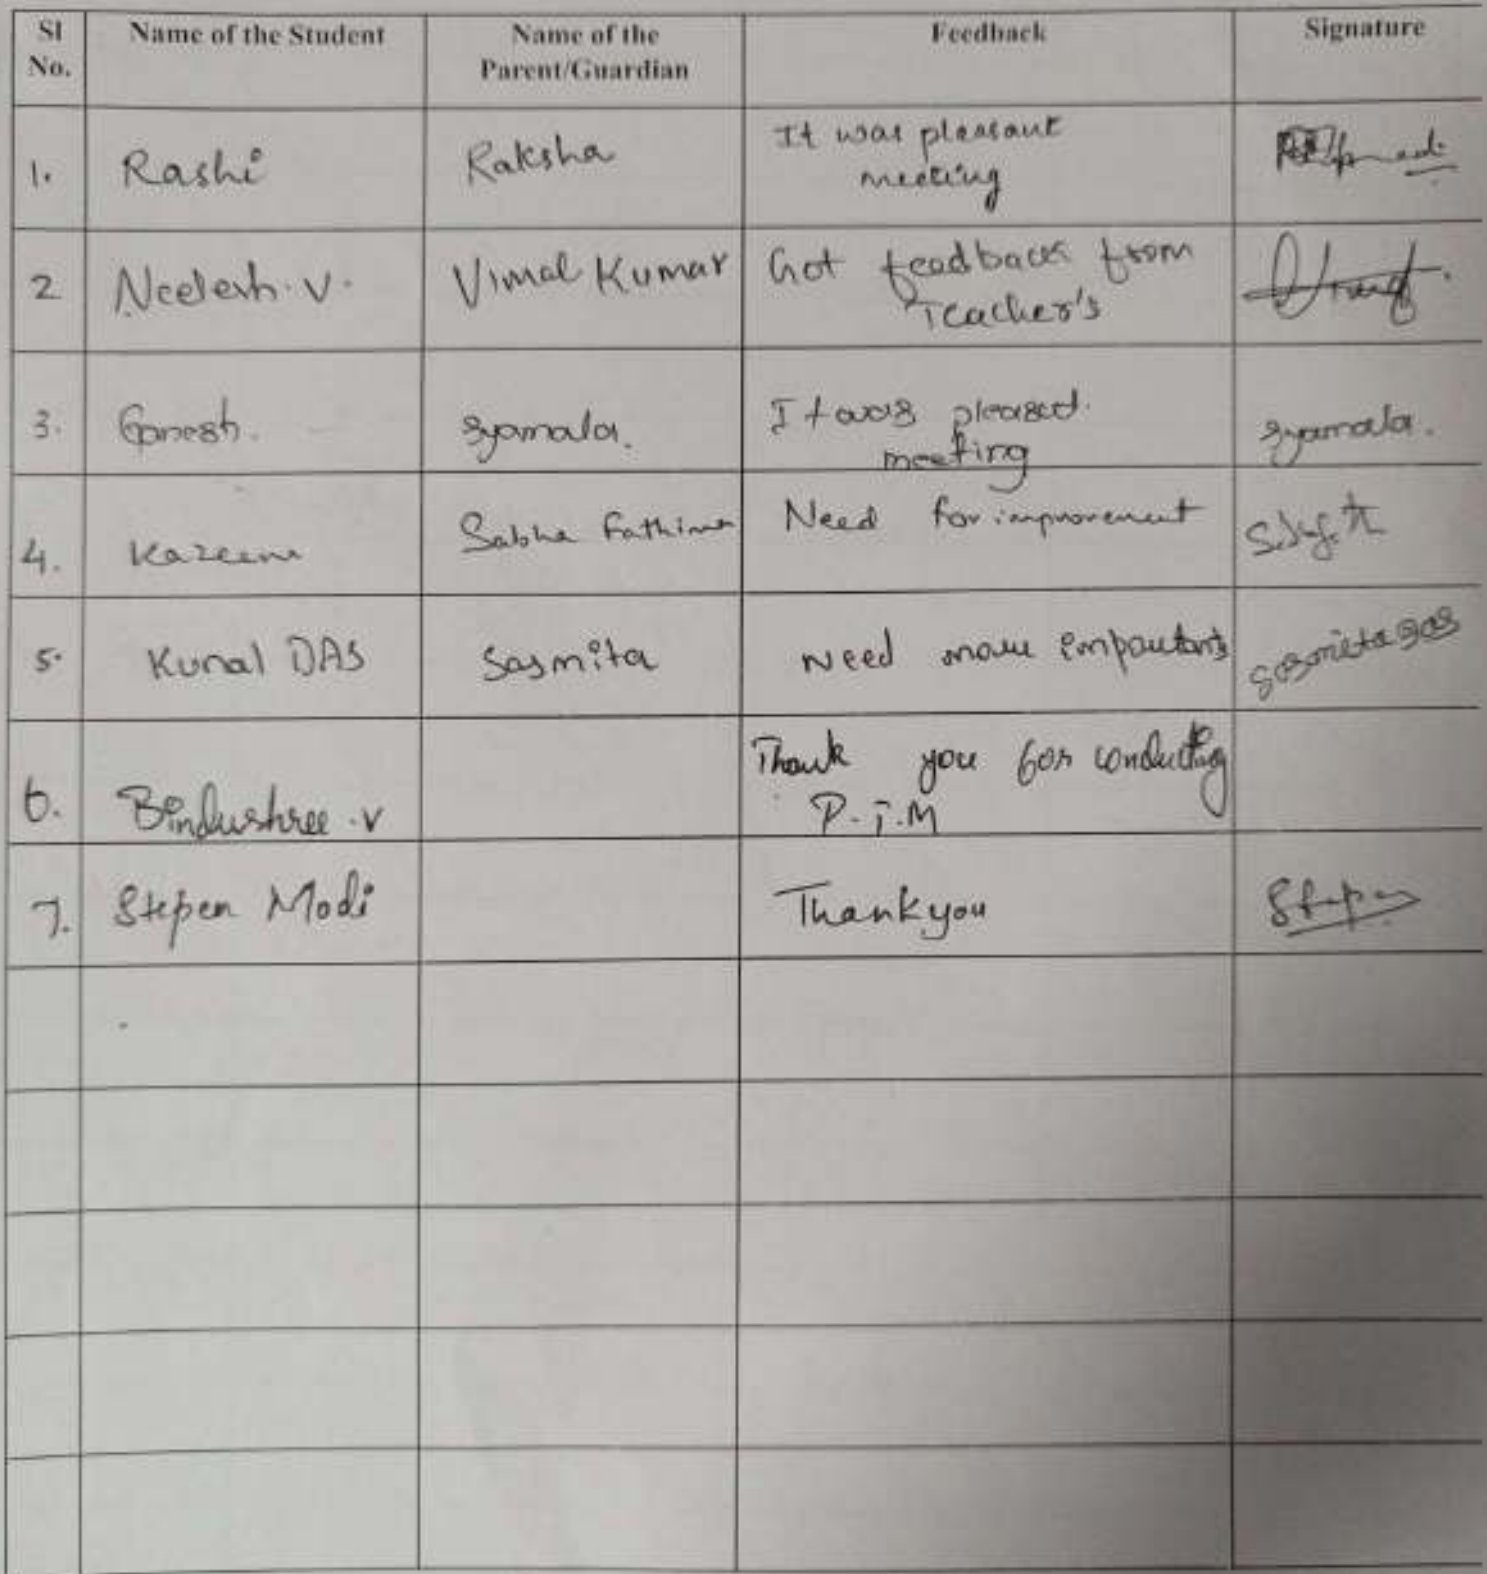 Sl No. Name of the Student Name of the Parent/Guardian Feedback Signature
1. Rashi Raksha It was pleasant
meeting
2 Neelesh.V. Vimal Kumar Got feedback from
Teacher's
3. Ganesh. syamala. It was pleased.
meeting syamala.
4. Kazeem Sabha Fathima Need for improvement
5. Kunal DAS Sasmita Need more importants sasmita das
6. Bindushree.V Thank you for conducting
P.T.M
7. Stepen Modi Thankyou Stepen